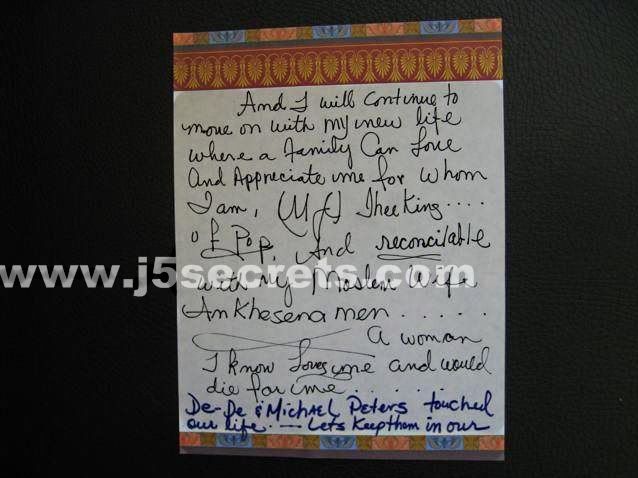 And I will continue to
move on with my new life
where a family Can Love
And Appreciate me for whom
I am, (MJ) Thee King....
of Pop, And reconcilable
www.j5secrets.com
with my Moslem Wife
Ankhesenamen......
A woman
I know Loves me and would
die for me......
De-De & Michael Peters touched
our life. — Lets Keep them in our